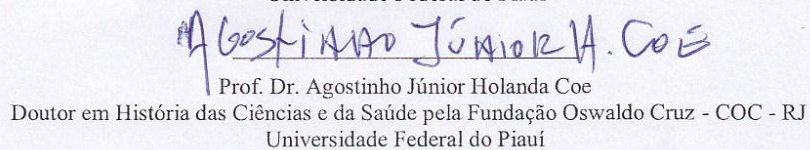 Agostinho Júnior H. Coe
Prof. Dr. Agostinho Júnior Holanda Coe
Doutor em História das Ciências e da Saúde pela Fundação Oswaldo Cruz - COC - RJ
Universidade Federal do Piauí